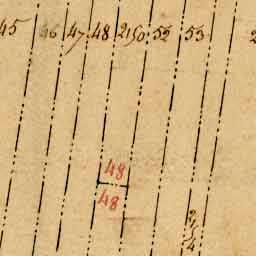 45 46 47 48 2150 52 53 2
48
48